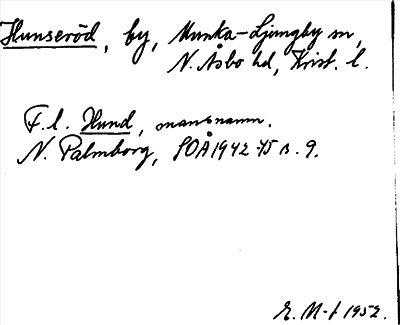 Hunseröd, by, Munka-Ljungby sn,
N. Åsbo hd, Krist. l.
F.l. Hund, mansnamn.
N. Palmborg, SOÅ 1942-45 s. 9.
1952.